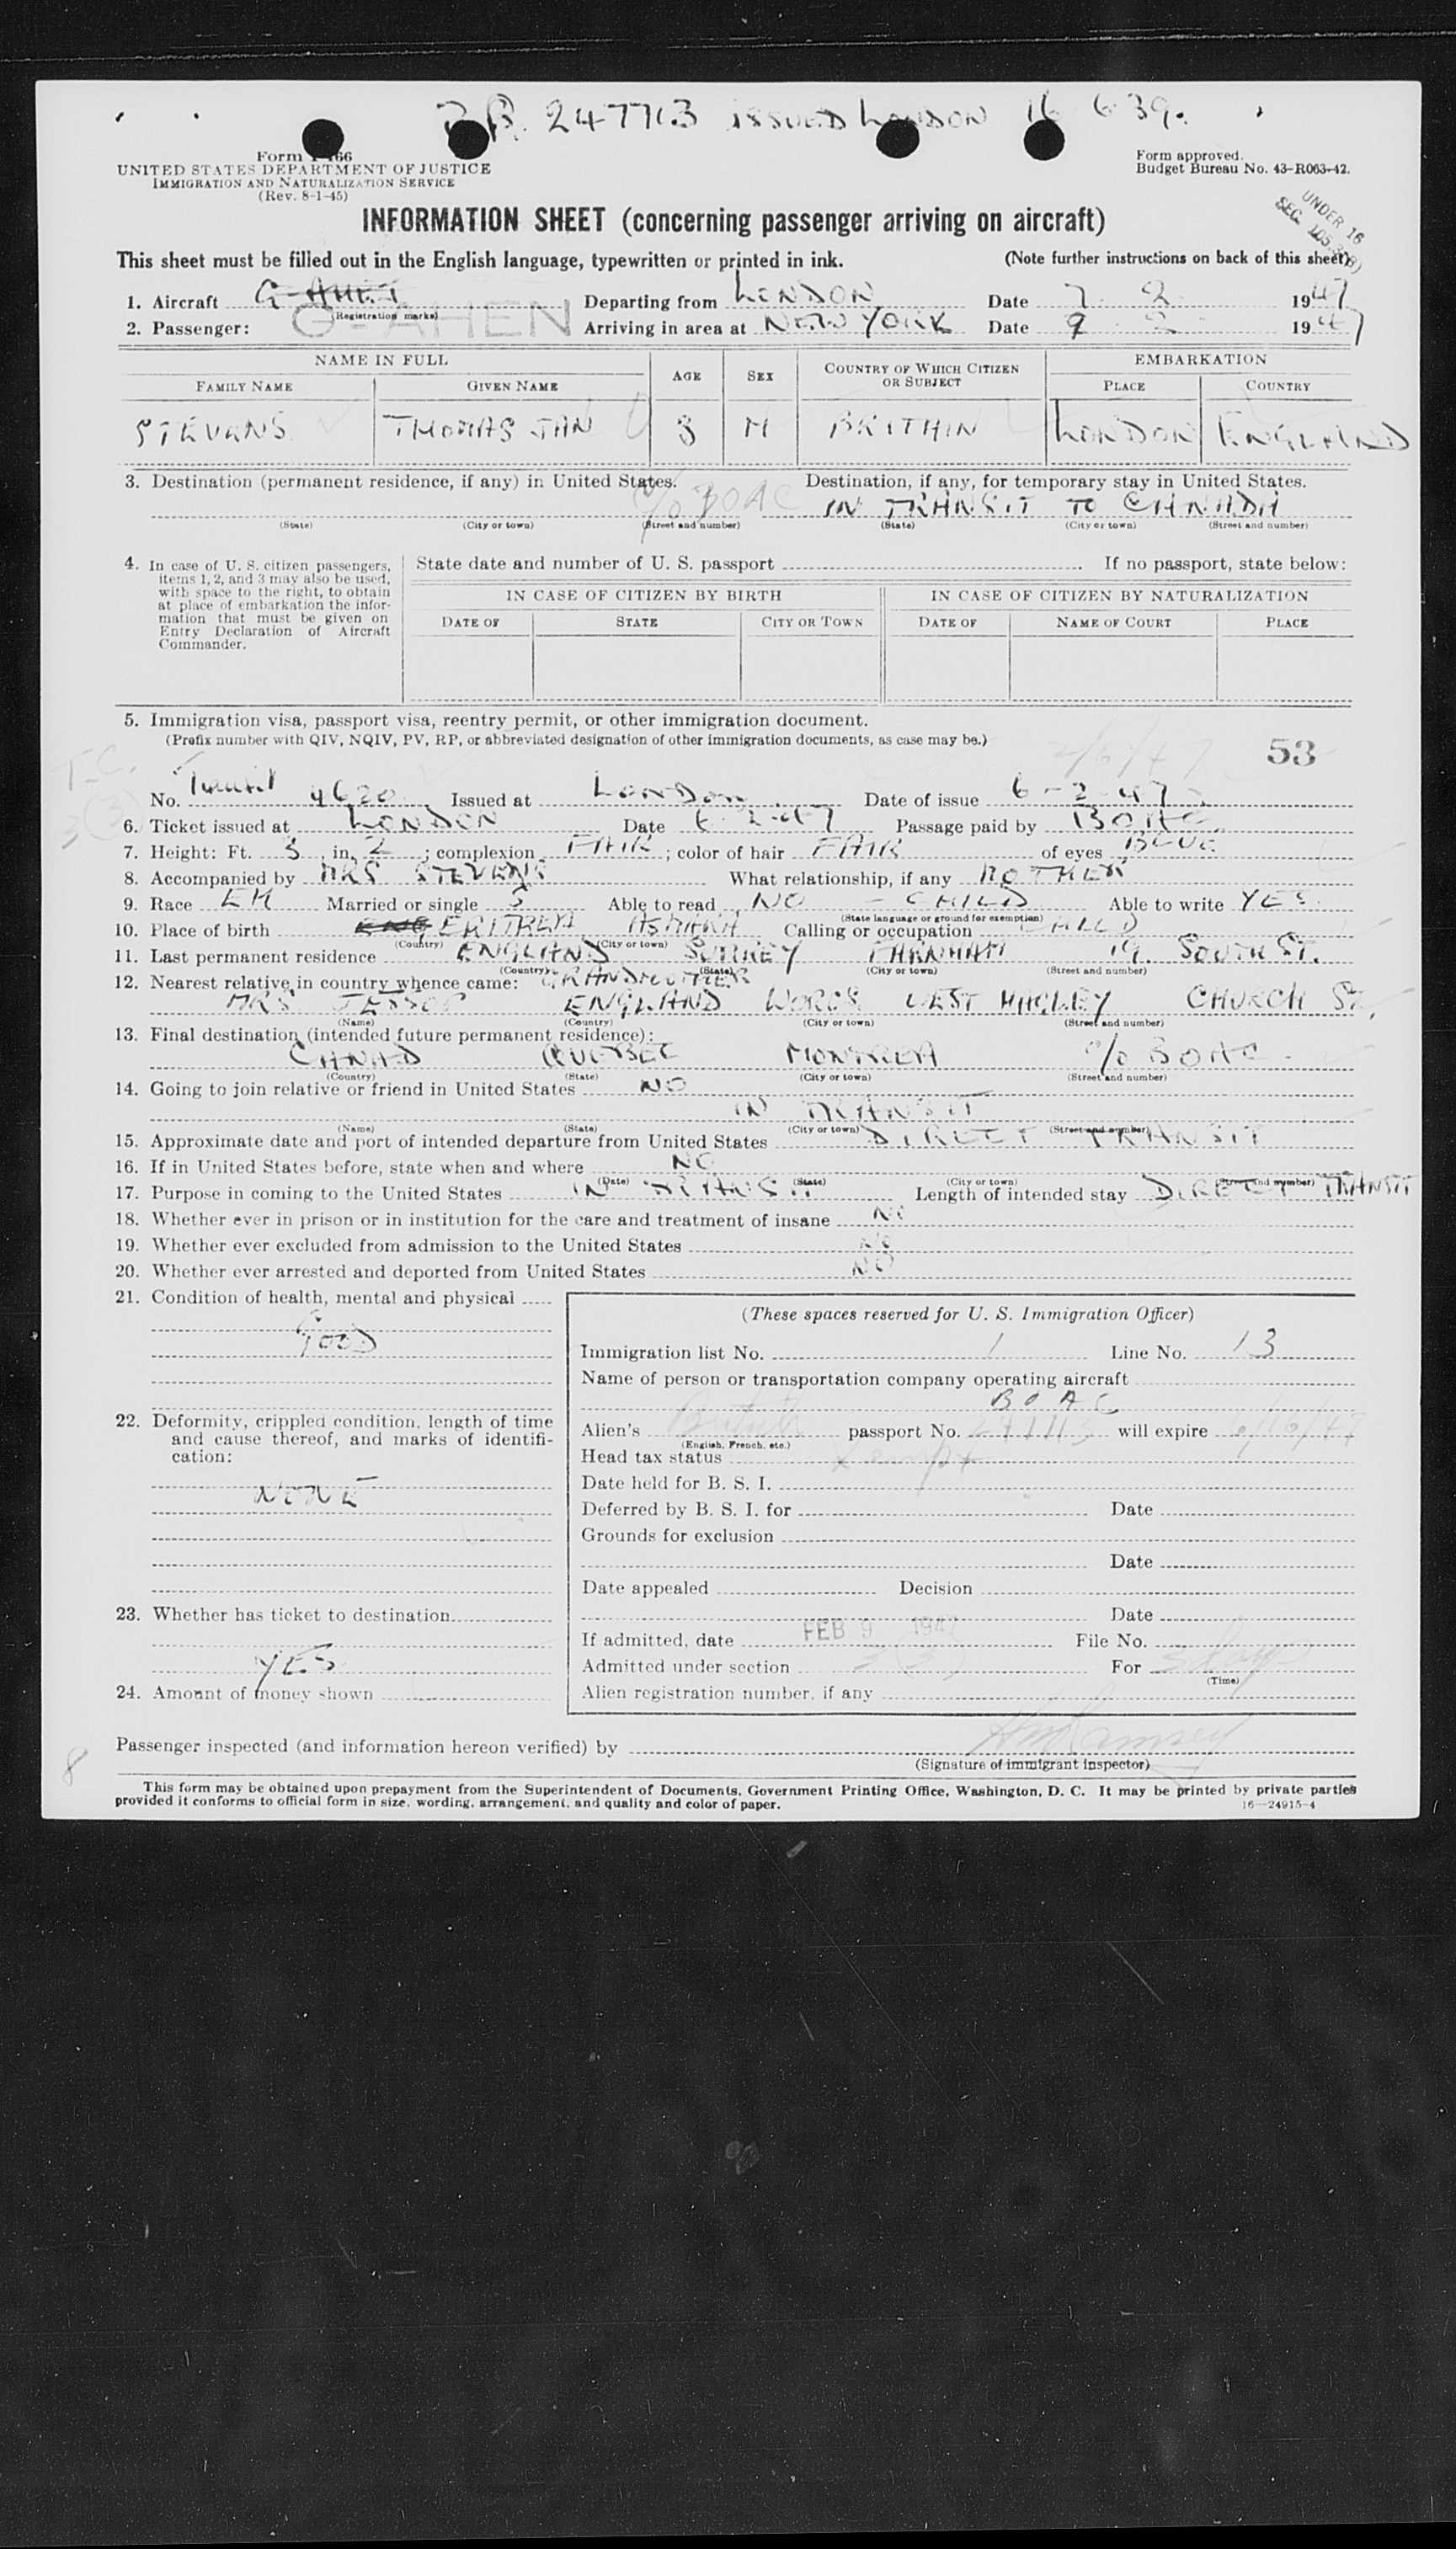 247713 ISSUED LONDON 16 6 39.
Form I-466
UNITED STATES DEPARTMENT OF JUSTICE
IMMIGRATION AND NATURALIZATION SERVICE
(Rev. 8-1-45)
Form approved.
Budget Bureau No. 43-R063-42.
UNDER 16
SEC. 105.3(B)
INFORMATION SHEET (concerning passenger arriving on aircraft)
This sheet must be filled out in the English language, typewritten or printed in ink. (Note further instructions on back of this sheet)
1. Aircraft G- Departing from LONDON Date 7 2 1947
(Registration marks)
G-AHEN
2. Passenger: Arriving in area at NEW YORK Date 9 2 1947
NAME IN FULL AGE SEX COUNTRY OF WHICH CITIZEN OR SUBJECT EMBARKATION
FAMILY NAME GIVEN NAME PLACE COUNTRY
STEVENS THOMAS IAN 3 M BRITAIN LONDON ENGLAND
3. Destination (permanent residence, if any) in United States. Destination, if any, for temporary stay in United States.
c/o BOAC IN TRANSIT TO CANADA
(State) (City or town) (Street and number) (State) (City or town) (Street and number)
4. In case of U. S. citizen passengers, items 1, 2, and 3 may also be used, with space to the right, to obtain at place of embarkation the information that must be given on Entry Declaration of Aircraft Commander.
State date and number of U. S. passport . If no passport, state below:
IN CASE OF CITIZEN BY BIRTH IN CASE OF CITIZEN BY NATURALIZATION
DATE OF STATE CITY OR TOWN DATE OF NAME OF COURT PLACE
5. Immigration visa, passport visa, reentry permit, or other immigration document.
(Prefix number with QIV, NQIV, PV, RP, or abbreviated designation of other immigration documents, as case may be.)
2/6/47 53
T.C.
No. Transit 4620 Issued at LONDON Date of issue 6-2-47
6. Ticket issued at LONDON Date 6-2-47 Passage paid by BOAC
7. Height: Ft. 3, in. 2; complexion FAIR; color of hair FAIR of eyes BLUE
8. Accompanied by MRS STEVENS What relationship, if any MOTHER
9. Race Married or single S Able to read NO - CHILD Able to write YES
(State language or ground for exemption)
10. Place of birth ERITREA ASMARA Calling or occupation CHILD
(Country) (City or town)
11. Last permanent residence ENGLAND SURREY FARNHAM 19 SOUTH ST.
(Country) (State) (City or town) (Street and number)
12. Nearest relative in country whence came: GRANDMOTHER
MRS JESSOP ENGLAND WORCS WEST HAGLEY CHURCH ST.
(Name) (Country) (City or town) (Street and number)
13. Final destination (intended future permanent residence):
CANAD QUEBEC MONTREA c/o BOAC
(Country) (State) (City or town) (Street and number)
14. Going to join relative or friend in United States NO
IN TRANSIT
(Name) (State) (City or town) (Street and number)
15. Approximate date and port of intended departure from United States DIRECT TRANSIT
16. If in United States before, state when and where NO
(Date) (State) (City or town) (Street and number)
17. Purpose in coming to the United States IN TRANSIT Length of intended stay DIRECT TRANSIT
18. Whether ever in prison or in institution for the care and treatment of insane NO
19. Whether ever excluded from admission to the United States NO
20. Whether ever arrested and deported from United States NO
21. Condition of health, mental and physical
GOOD
22. Deformity, crippled condition, length of time and cause thereof, and marks of identification:
NONE
23. Whether has ticket to destination
YES
24. Amount of money shown
(These spaces reserved for U. S. Immigration Officer)
Immigration list No. 1 Line No. 13
Name of person or transportation company operating aircraft
BOAC
Alien's British passport No. will expire
(English, French, etc.)
Head tax status
Date held for B. S. I.
Deferred by B. S. I. for Date
Grounds for exclusion
Date
Date appealed Decision
Date
If admitted, date FEB 9 1947 File No.
Admitted under section 3(3) For 3 days
(Time)
Alien registration number, if any
Passenger inspected (and information hereon verified) by
(Signature of immigrant inspector)
8
This form may be obtained upon prepayment from the Superintendent of Documents, Government Printing Office, Washington, D. C. It may be printed by private parties
provided it conforms to official form in size, wording, arrangement, and quality and color of paper. 16—24915-4